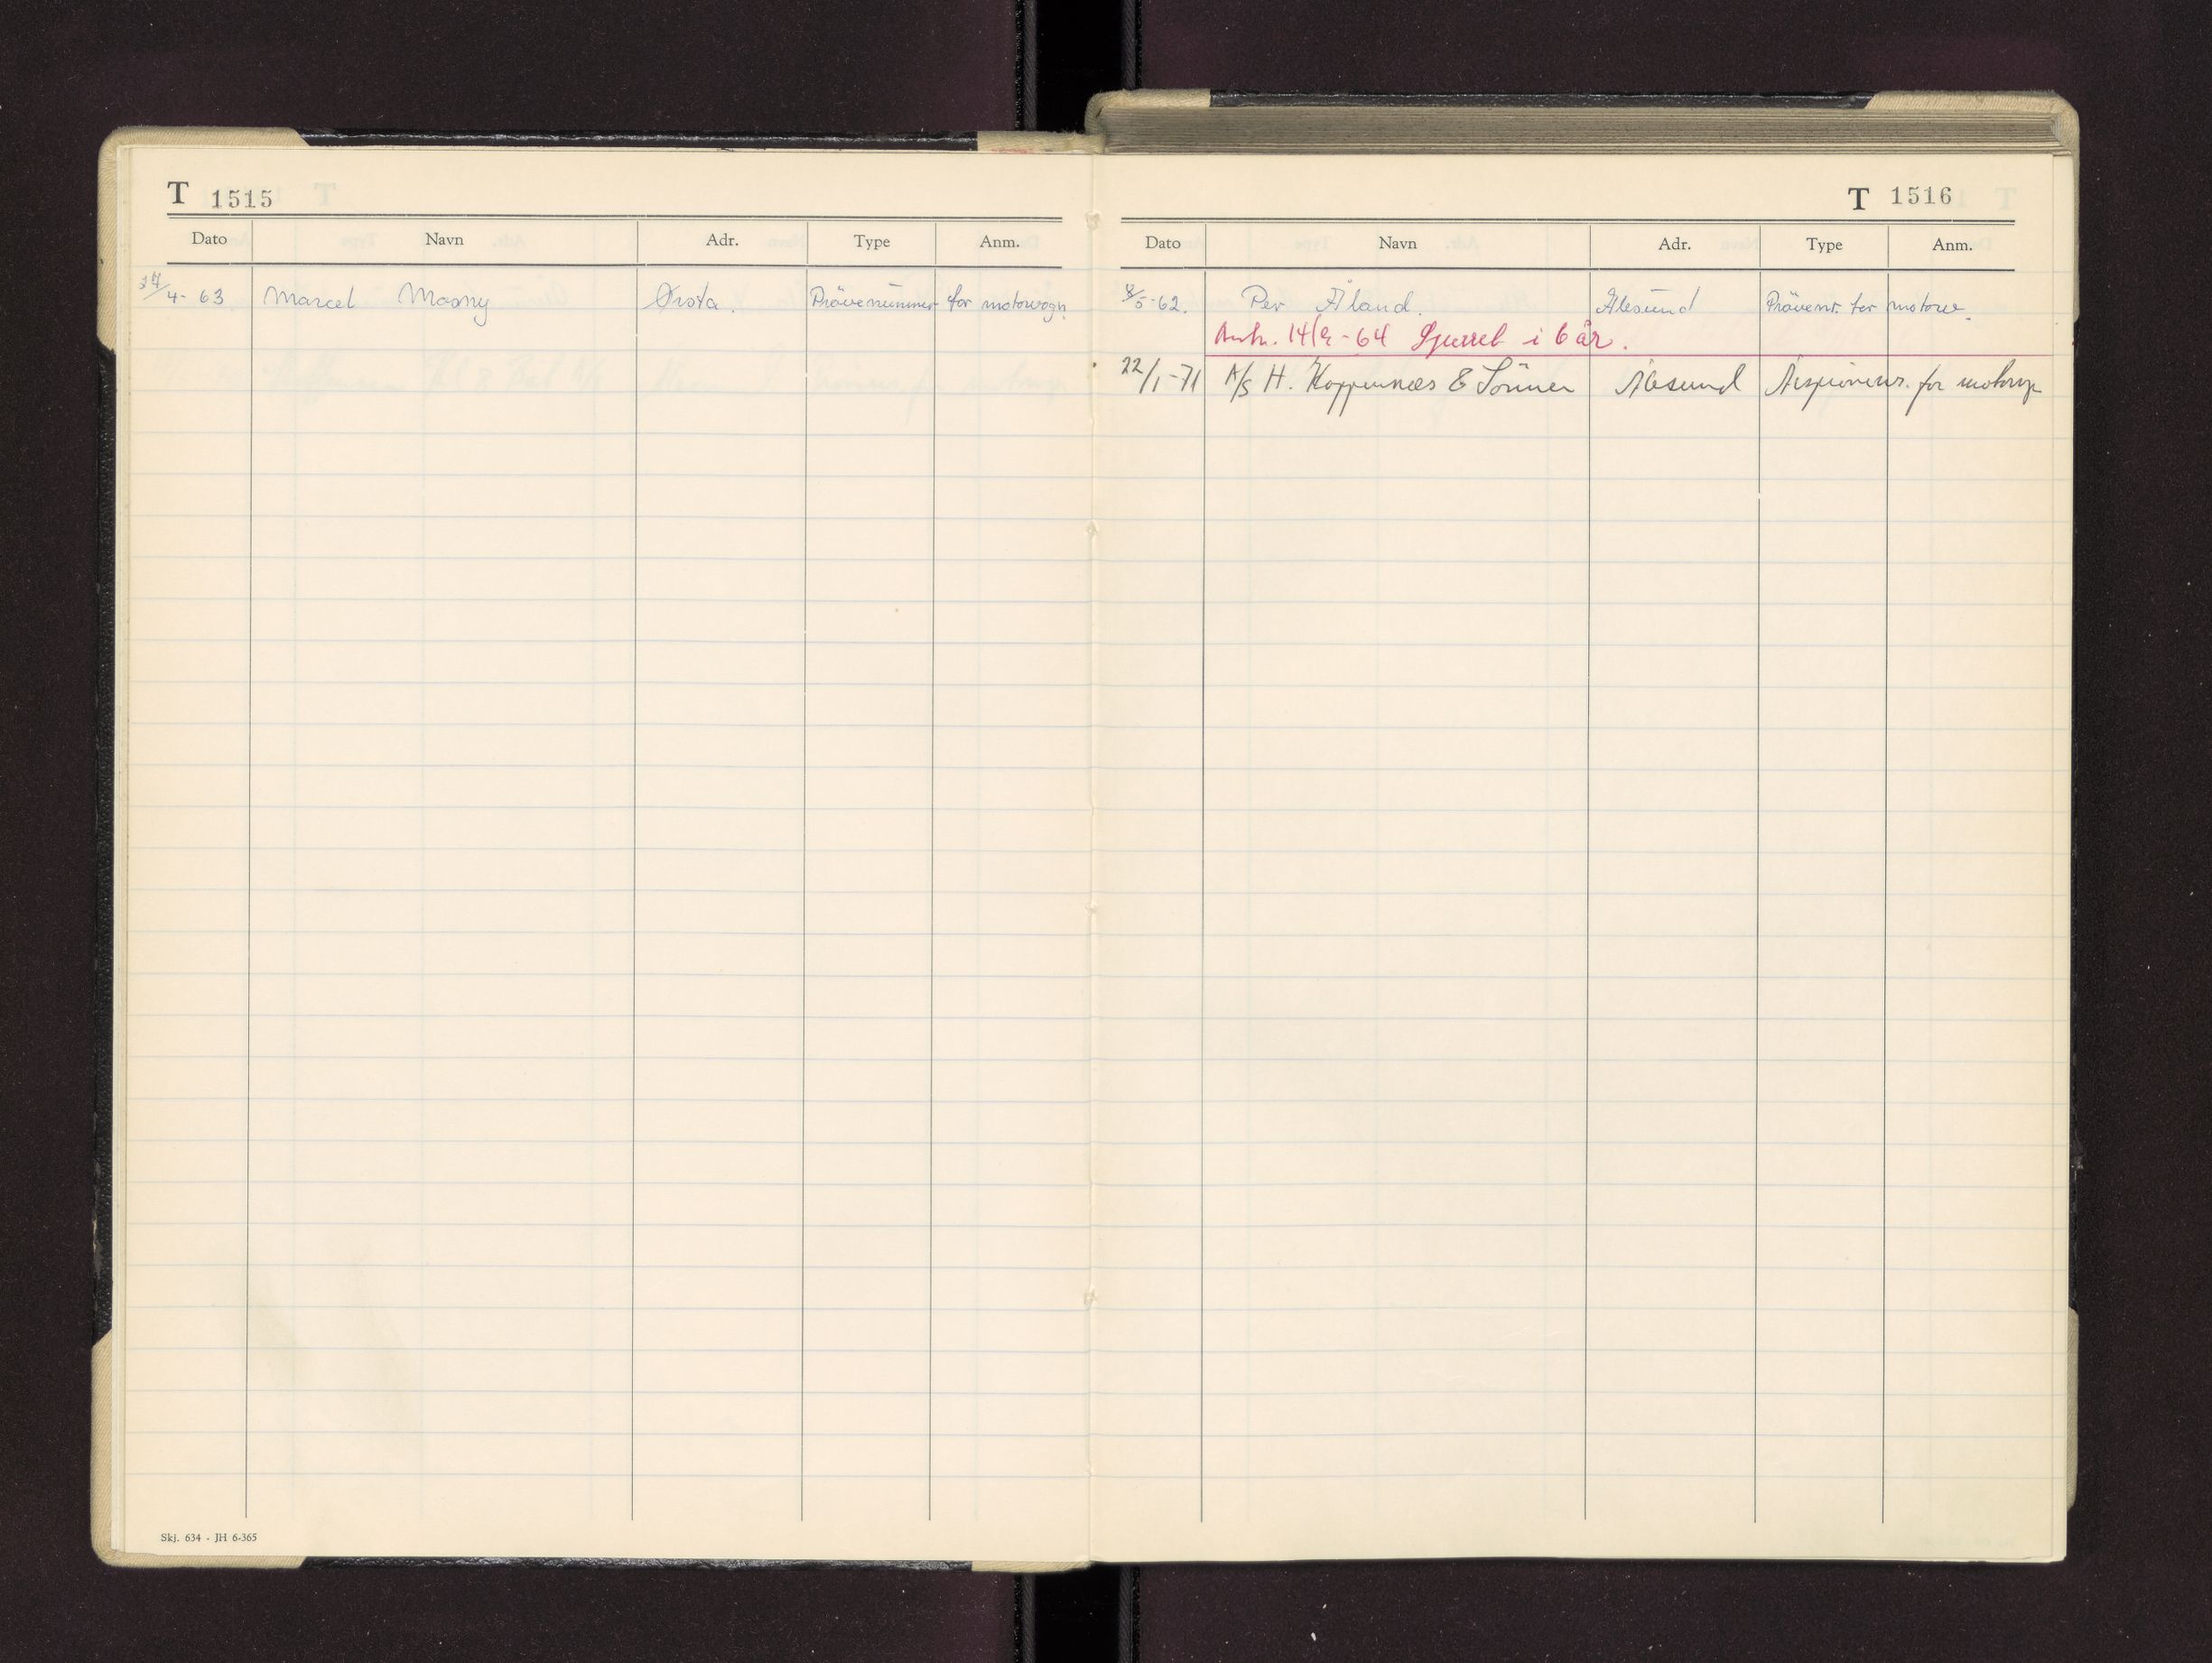 T 1515
Dato Navn Adr. Type Anm.
24/4-63 Marcel Masny Ørsta. Prövenummer for motorvogn
Skj. 634 - JH 6-365
T 1516
Dato Navn Adr. Type Anm.
8/5-62. Per Åland. Ålesund Prövenr. for motorv.
14/9-64 Sperret i 6 år.
22/1-71 A/S H. Koppernæs & Sönner Ålesund for motorvgn